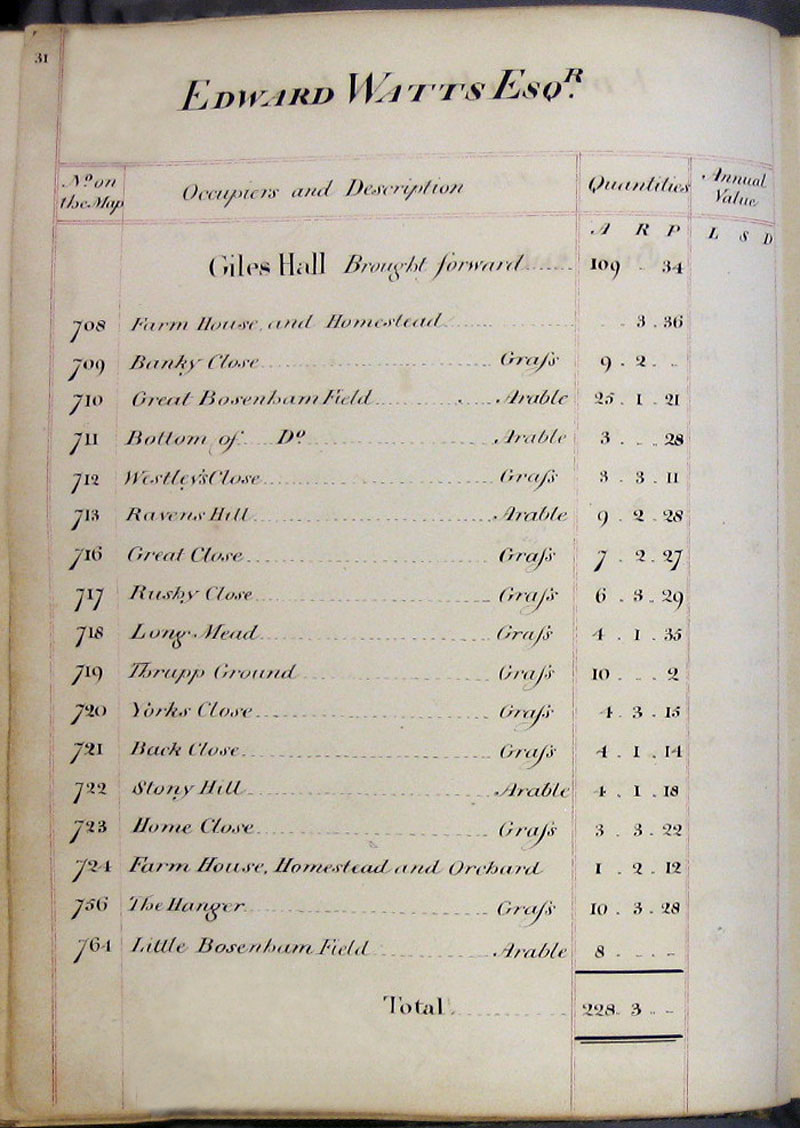 31
EDWARD WATTS ESQ.R
No. on the Map Occupiers and Description Quantities Annual Value
A R P L S D
Giles Hall Brought forward 109 . 34
708 Farm House, and Homestead . 3 . 36
709 Banky Close Graſs 9 . 2 . .
710 Great Bosenham Field Arable 25 . 1 . 21
711 Bottom of Do. Arable 3 . . . 28
712 Westley's Close Graſs 3 . 3 . 11
713 Ravens Hill Arable 9 . 2 . 28
716 Great Close Graſs 7 . 2 . 27
717 Rushy Close Graſs 6 . 3 . 29
718 Long Mead Graſs 4 . 1 . 35
719 Thrupp Ground Graſs 10 . . . 2
720 Yorks Close Graſs 4 . 3 . 15
721 Back Close Graſs 4 . 1 . 14
722 Stony Hill Arable 4 . 1 . 18
723 Home Close Graſs 3 . 3 . 22
724 Farm House, Homestead and Orchard 1 . 2 . 12
756 The Hanger Graſs 10 . 3 . 28
764 Little Bosenham Field Arable 8 . . .
Total 228 . 3 . .